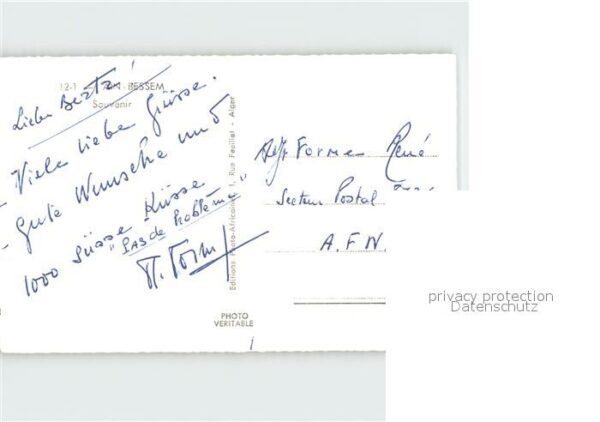 12-1 AIN-BESSEM
Souvenir
Liebe Berta!
Viele liebe Grüsse.
Gute Wünsche und
1000 süsse Küsse
"Pas de Problème"
Editions Photo-Africaines 1, Rue Feuillet - Alger
PHOTO
VERITABLE
René
Secteur Postal
A.F.N.
privacy protection
Datenschutz